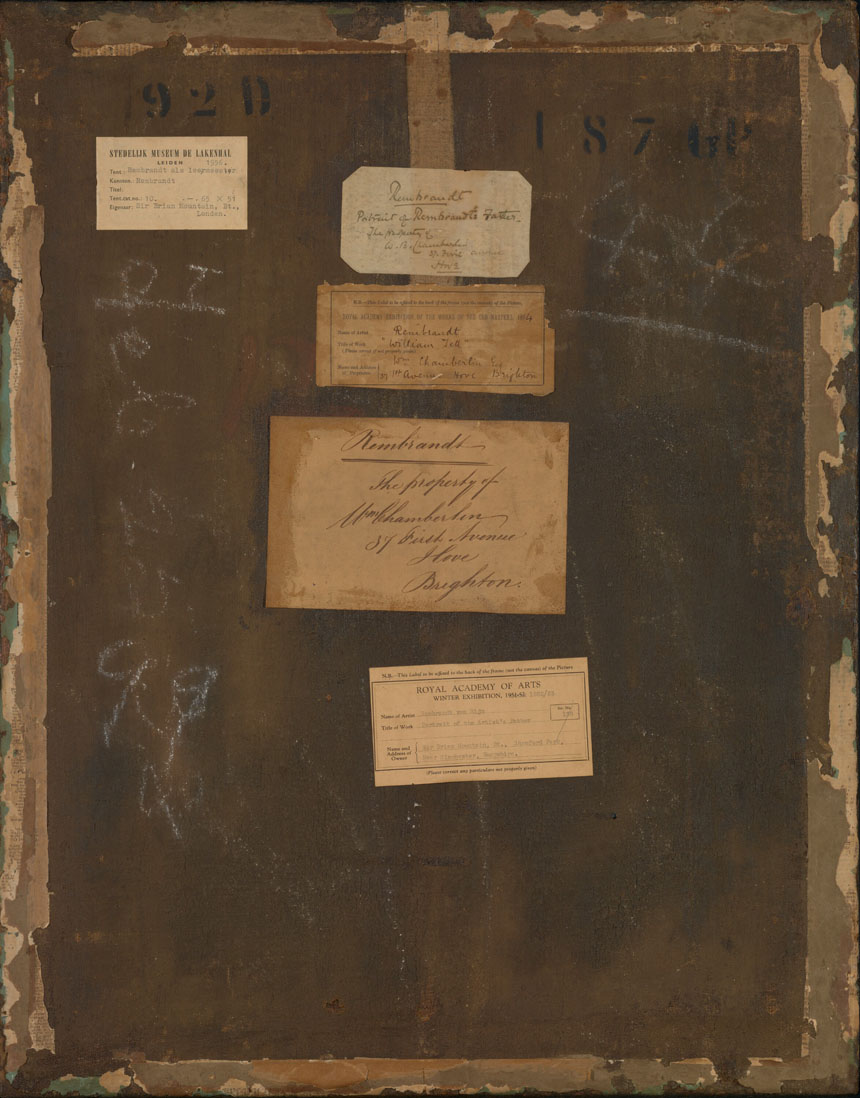 92D
187
STEDELIJK MUSEUM DE LAKENHAL
LEIDEN 1956.
Tent.: Rembrandt als leermeester
Kunstenr. Rembrandt
Titel:
Tent.cat.no.: 10. 65 X 51
Eigenaar: Sir Brian Mountain, Bt.,
Londen.
Rembrandt
Portrait of Rembrandt's Father
The Property of
W. Chamberlin
37 First Avenue
Hove
N.B.—This Label to be affixed to the back of the frame (not the canvas) of the Picture.
ROYAL ACADEMY EXHIBITION OF THE WORKS OF THE OLD MASTERS, 1894
Name of Artist Rembrandt
Title of Work "William Tell"
(Please correct if not properly entitled)
Name and Address of Proprietor Wm Chamberlin Esq
37 1st Avenue Hove Brighton
Rembrandt
The property of
Wm Chamberlin
37 First Avenue
Hove
Brighton.
N.B.—This Label to be affixed to the back of the frame (not the canvas) of the Picture
ROYAL ACADEMY OF ARTS
WINTER EXHIBITION, 1951-52 1952/53
Name of Artist Rembrandt van Rijn
Title of Work Portrait of the Artist's Father
Name and Address of Owner Sir Brian Mountain, Bt.,
Near Winchester, Hampshire.
(Please correct any particulars not properly given)